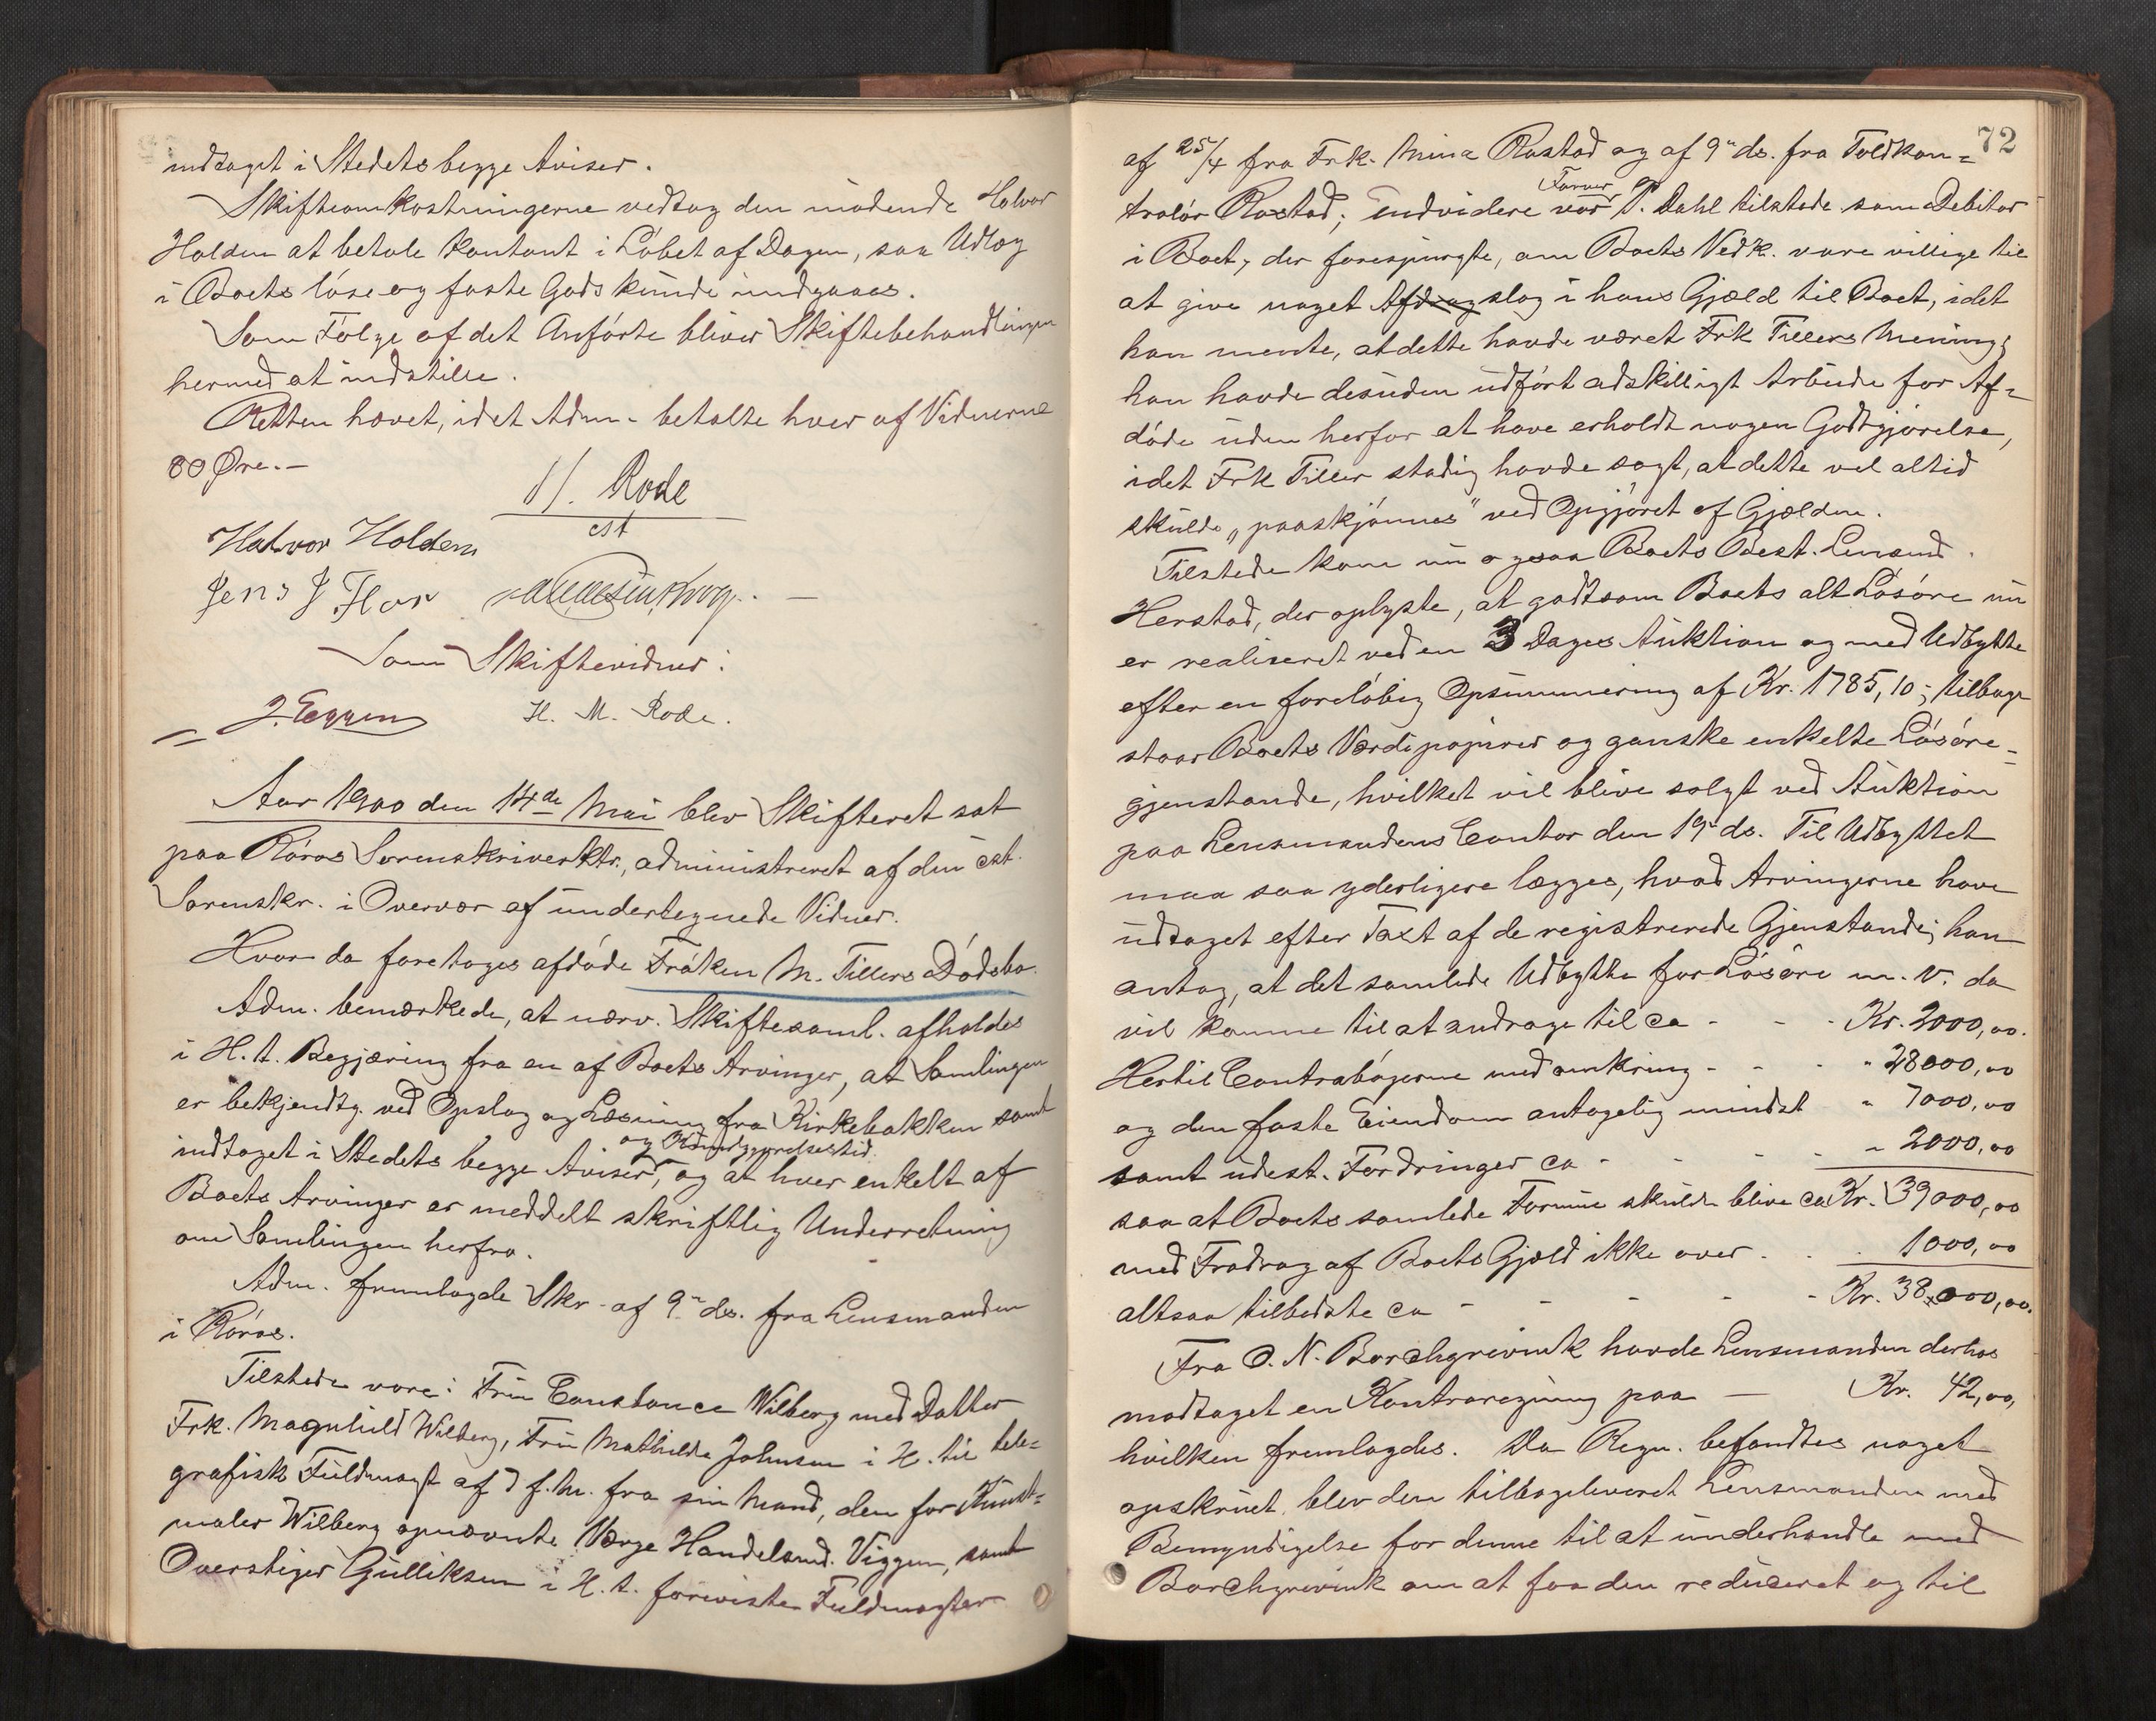 indtaget i Stedets begge Aviser.
Skifteomkostningerne vedtog den mødende Halvor
Holden at betale kontant i Løbet af Dagen, saa Udlæg
i Boets løse og faste Gods kunde undgaaes.
Som Følge af det Anførte bliver Skiftebehandlingen
hermed at indstille.
Retten hævet, idet Adm. betalte hver af Vidnerne
80 Øre.-
H. Rode
cst
Halvor Holden
Jens J Flor
Som Skiftevidner:
J. Eggen H. M. Rode.
Aar 1900 den 14de Mai blev Skifteret sat
paa Røros Sorenskriverktr., administreret af den cst.
Sorenskr. i Overvær af undertegnede Vidner.
Hvor da foretoges afdøde Frøken M. Tillers Dødsbo.
Adm. bemærkede, at nærv. Skiftesaml. afholdes
i H. t. Begjæring fra en af Boets Arvinger, at Samlingen
er bekjendtg. ved Opslag og Læsning fra Kirkebakken samt
og Kundgjørelsestid.
indtaget i Stedets begge Aviser, og at hver enkelt af
Boets Arvinger er meddelt skriftlig Underretning
om Samlingen herfra.
Adm. fremlagde Skr. af 9" ds. fra Lensmanden
i Røros.
Tilstede vare: Fru Constance Wilberg med Datter
Frk. Magnhild Wilberg, Fru Mathilde Johnsen i H. til tele=
grafisk Fuldmagt af 7 f. M. fra sin Mand, den for Kunst=
maler Wilberg opnævnte Værge Handelsmd. Viggen, samt
Overstiger Gulliksen i H. t. foreviste Fuldmagter
72
af 25/4 fra Frk. Mina Rostad og af 9" ds. fra Toldkon=
Farver
trolør Rostad; endvidere var P. Dahl tilstede som Debitor
i Boet, der forespurgte, om Boets Vedk. vare villige til
at give noget Afdrag slag i hans Gjæld til Boet, idet
han mente, at dette havde været Frk Tillers Mening;
han havde desuden udført adskilligt Arbeide for Af=
døde uden herfor at have erholdt nogen Godtgjørelse,
idet Frk Tiller stadig havde sagt, at dette vel altid
skulde „paaskjønnes" ved Opgjøret af Gjælden.
Tilstede kom nu ogsaa Boets Best. Lensmd.
Herstad, der oplyste, at godtsom Boets alt Løsøre nu
er realiseret ved en 3 Dages Auktion og med Udbytte
efter en foreløbig Opsummering af Kr. 1785,10; tilbage
staar Boets Værdipapirer og ganske enkelte Løsøre=
gjenstande, hvilket vil blive solgt ved Auktion
paa Lensmandens Contor den 19" ds. Til Udbyttet
maa saa yderligere lægges, hvad Arvingerne have
udtaget efter Taxt af de registrerede Gjenstande; han
antog, at det samlede Udbytte for Løsøre m. v. da
vil komme til at andrage til ca - - - Kr. 2000,00.
Hertil Contrabøgerne med omkring - - - " 28000,00
og den faste Eiendom antagelig mindst " 7000,00
samt udest. Fordringer ca - - - - " 2000,00
saa at Boets samlede Formue skulde blive ca Kr. 39000,00
med Fradrag af Boets Gjæld ikke over - - - 1000,00
altsaa tilbedste ca - - - - - Kr. 38000,00.
Fra O. N. Borchgrevink havde Lensmanden derhos
modtaget en Kontraregning paa — Kr. 42,00,
hvilken fremlagdes. Da Regn. befandtes noget
opskruet, blev den tilbageleveret Lensmanden med
Bemyndigelse for denne til at underhandle med
Borchgrevink om at faa den reduceret og til